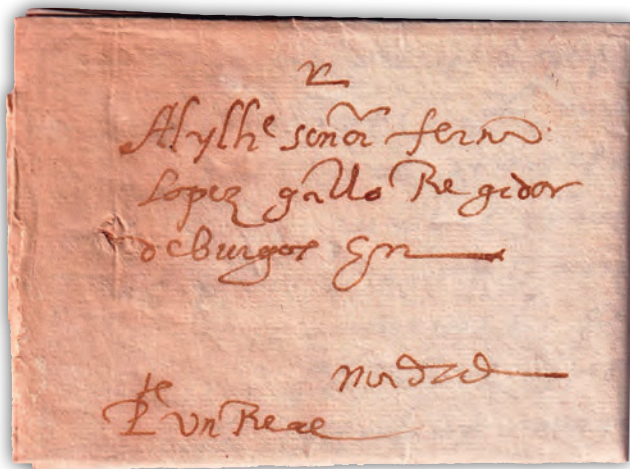 Al yllᵉ señor ferⁿ
Lopez gallo Regidor
de burgos En
madrid
pᵗᵉ Un Real